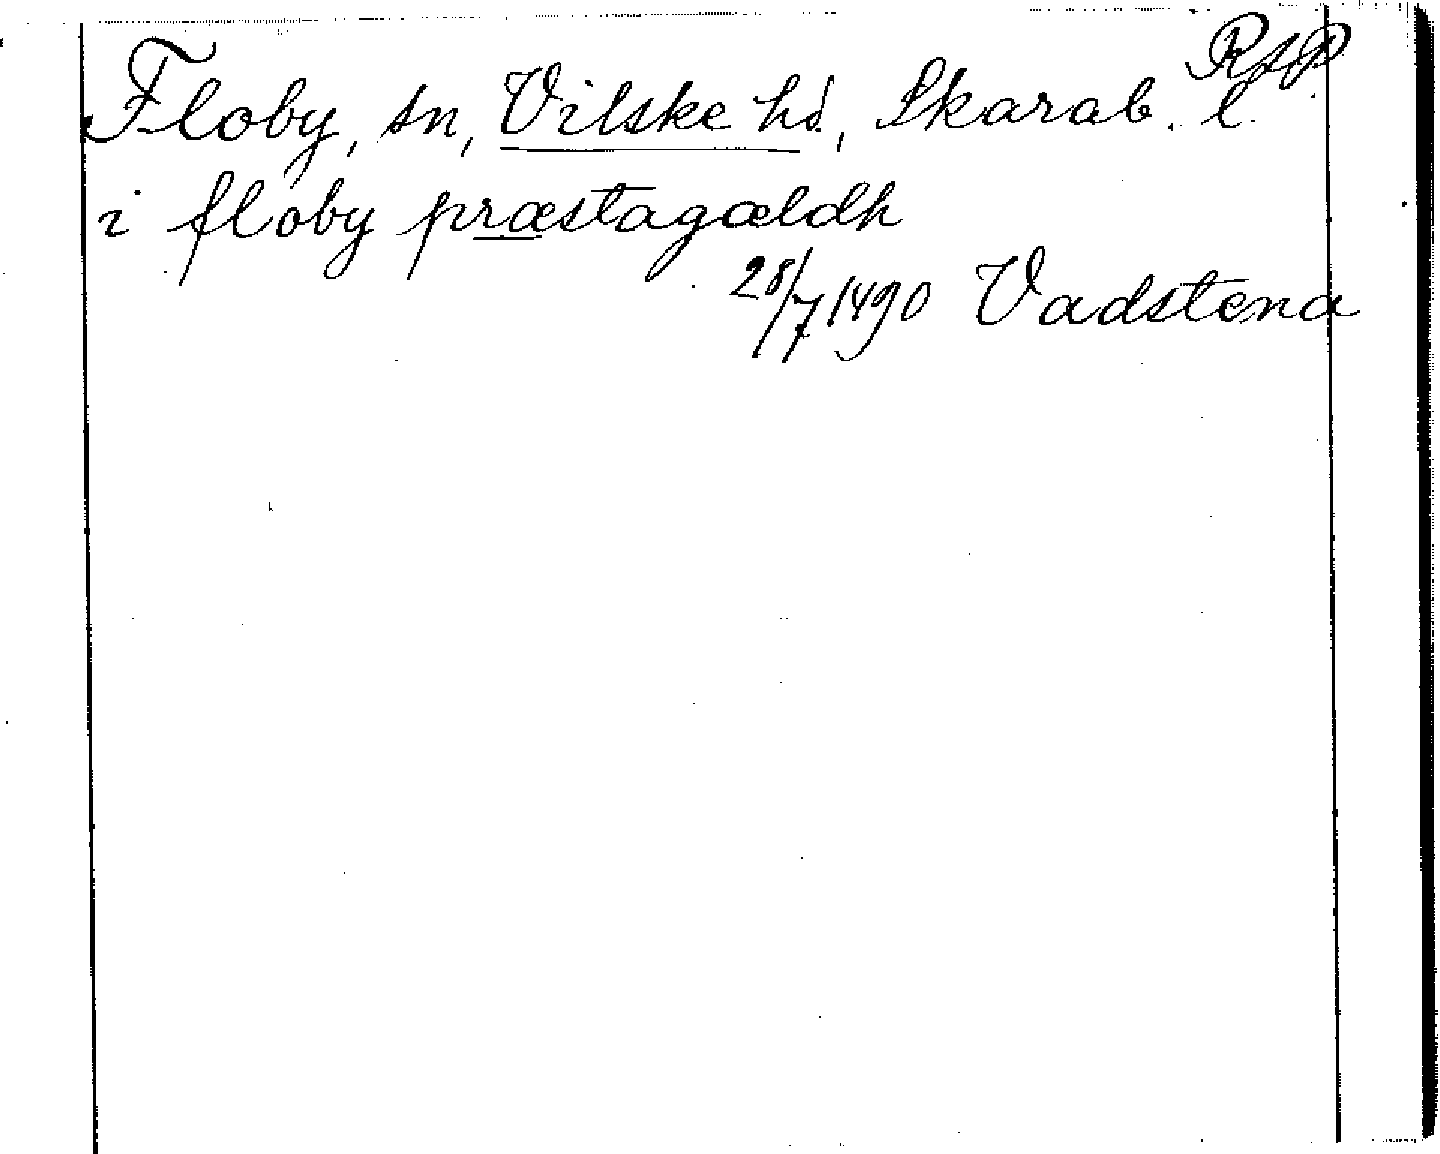 RAP
Floby, sn, Vilske hd, Skarab. l.
i floby præstagældh
28/7 1490 Vadstena